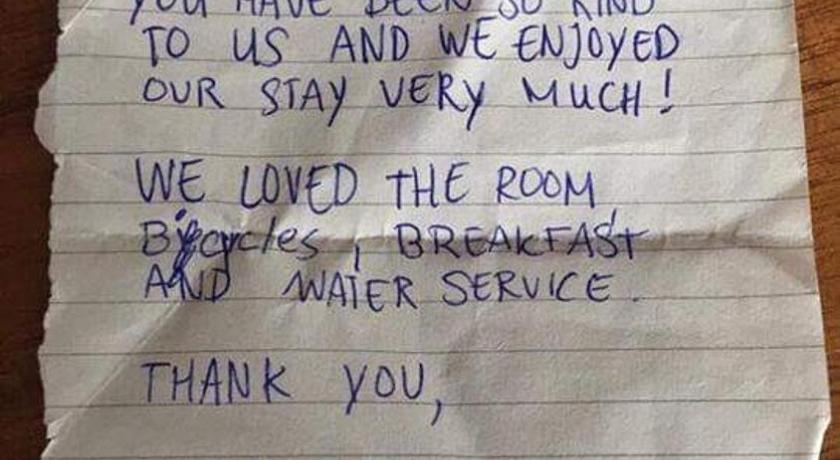 YOU HAVE BEEN SO KIND
TO US AND WE ENJOYED
OUR STAY VERY MUCH!
WE LOVED THE ROOM,
Bicycles, BREAKFAST
AND WATER SERVICE.
THANK YOU,